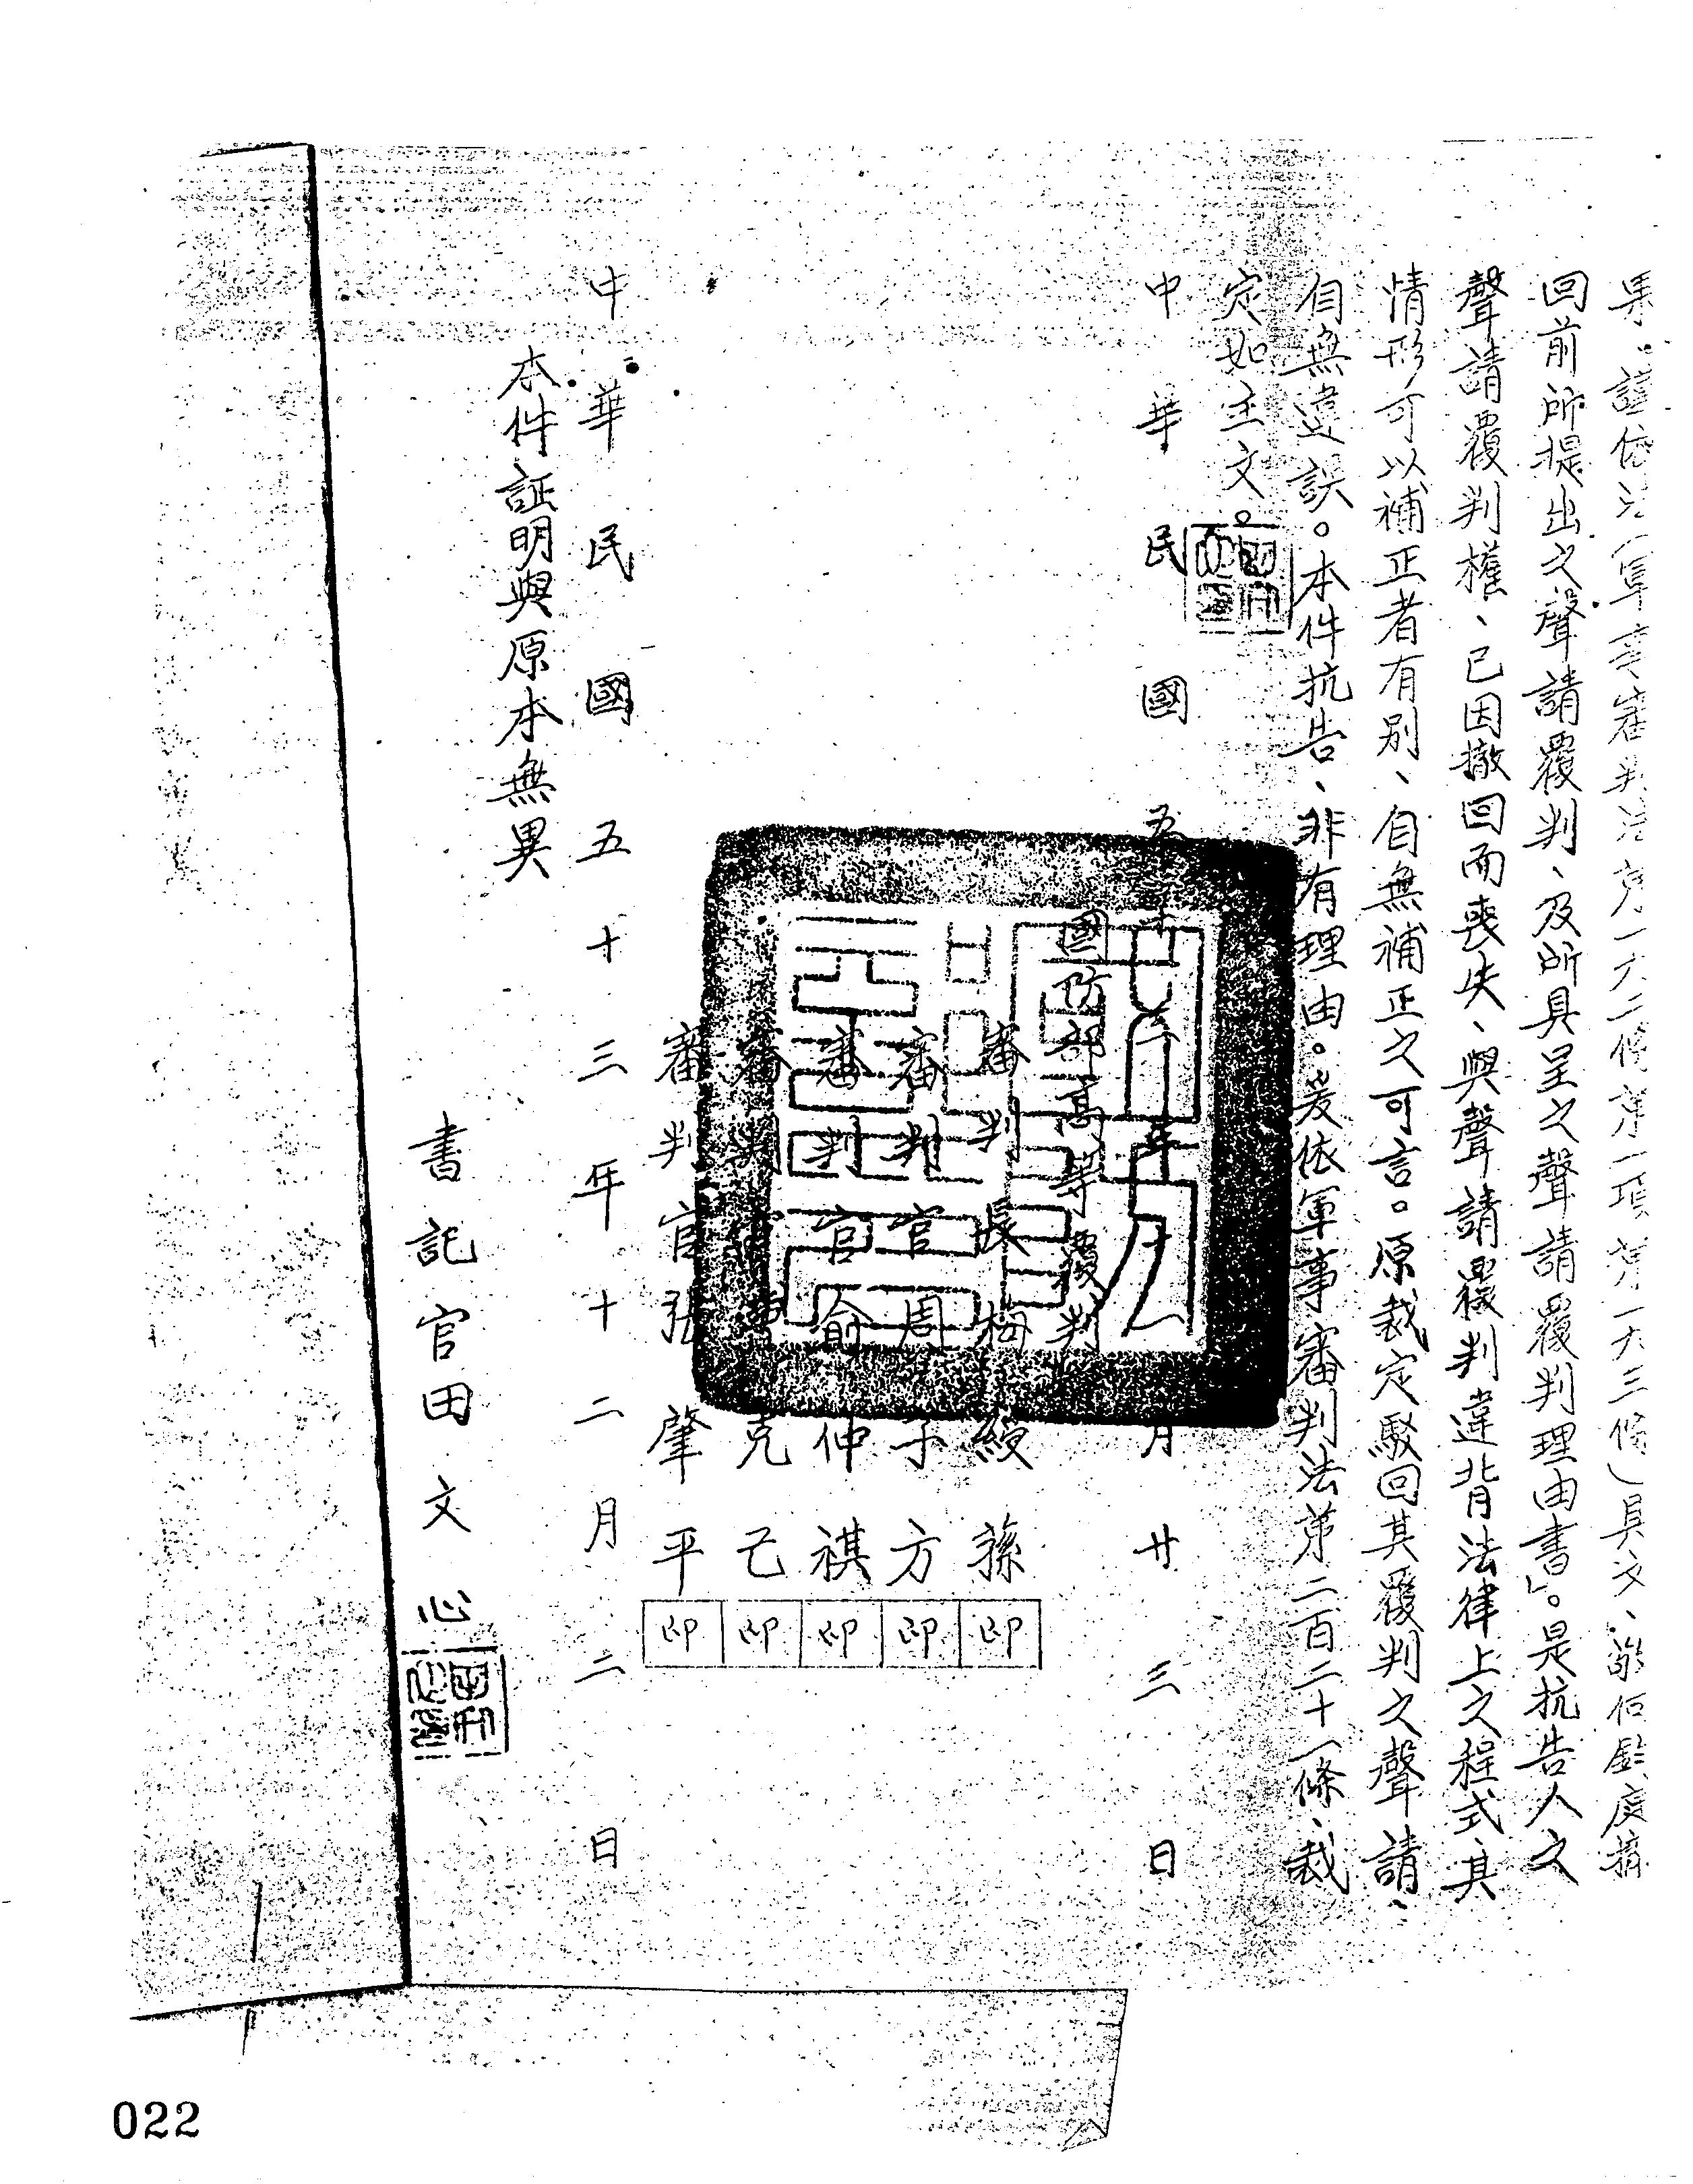 謹依法(軍事審判法第一六二條第一項第一六三條)具文、
回前所提出之聲請覆判、及所具呈之聲請覆判理由書」。是抗告人之
聲請覆判權、已因撤回而喪失、與聲請覆判違背法律上之程式、其
情形可以補正者有別、自無補正之可言。原裁定駁回其覆判之聲請、
自無違誤。本件抗告、非有理由。爰依軍事審判法第二百二十一條、裁
定如主文。
中華民國五十三年 月廿三日
國防部高等覆判
審判長梅綬蓀 印
審判官周于方 印
審判官俞仲祺 印
審判官 克己 印
審判官張肇平 印
中華民國五十三年十二月二日
本件証明與原本無異
書記官田文心
022